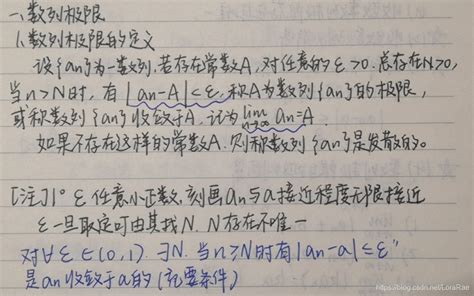 一、数列极限
1、数列极限的定义
设{an}为一数列,若存在常数A,对任意的ε>0,总存在N>0,
当n>N时,有|an-A|<ε,称A为数列{an}的极限,
或称数列{an}收敛于A,记为lim n→∞ an=A
如果不存在这样的常数A,则称数列{an}是发散的。
[注]1° ε任意小正数,刻画an与a接近程度无限接近
ε一旦取定可由其找N.N存在不唯一
对∀ε∈(0,1).∃N.当n≥N时有|an-a|≤ε"
是an收敛于a的(充要条件)
https://blog.csdn.net/LoraRae